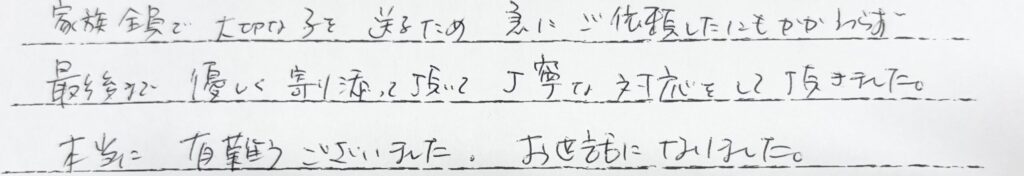 家族全員で 大切な子を 送るため 急に ご依頼したにもかかわらず
最後まで 優しく寄り添って頂いて 丁寧な対応をして頂きました。
本当に 有難うございました。お世話になりました。